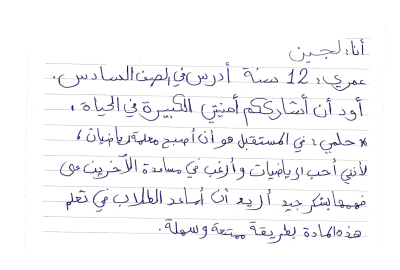 أنا: لجين
عمري: 12 سنة أدرس في الصف السادس.
أود أن أشارككم أمنيتي الكبيرة في الحياة،
* حلمي: في المستقبل هو أن أصبح معلمة رياضيات،
لأنني أحب الرياضيات وأرغب في مساعدة الآخرين على
فهمها بشكر جيد أريد أن أساعد الطلاب في تعلم
هذه المادة بطريقة ممتعة وسهلة.